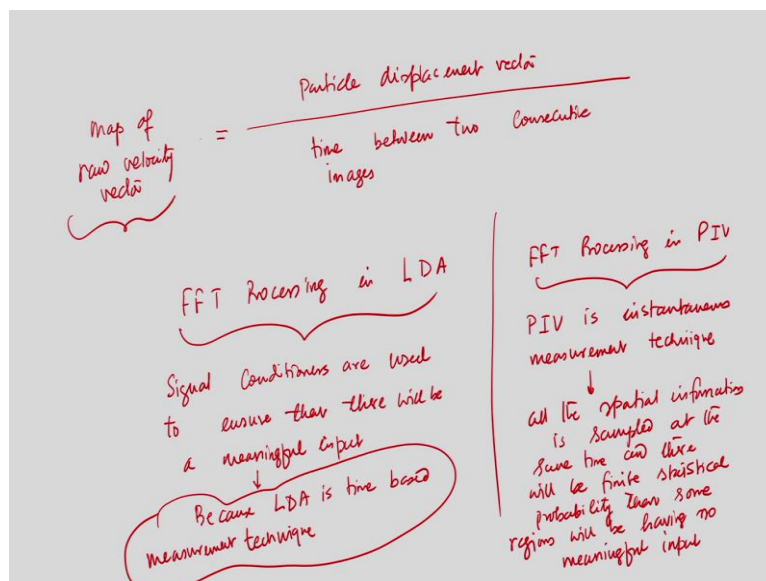 map of
raw velocity
vector
=
Particle displacement vector
time between two consecutive
images
FFT Processing in LDA
Signal Conditioners are used
to ensure that there will be
a meaningful input
Because LDA is time based
measurement technique
FFT Processing in PIV
PIV is instantaneous
measurement technique
all the spatial information
is sampled at the
same time and there
will be finite statistical
probability that some
regions will be having no
meaningful input